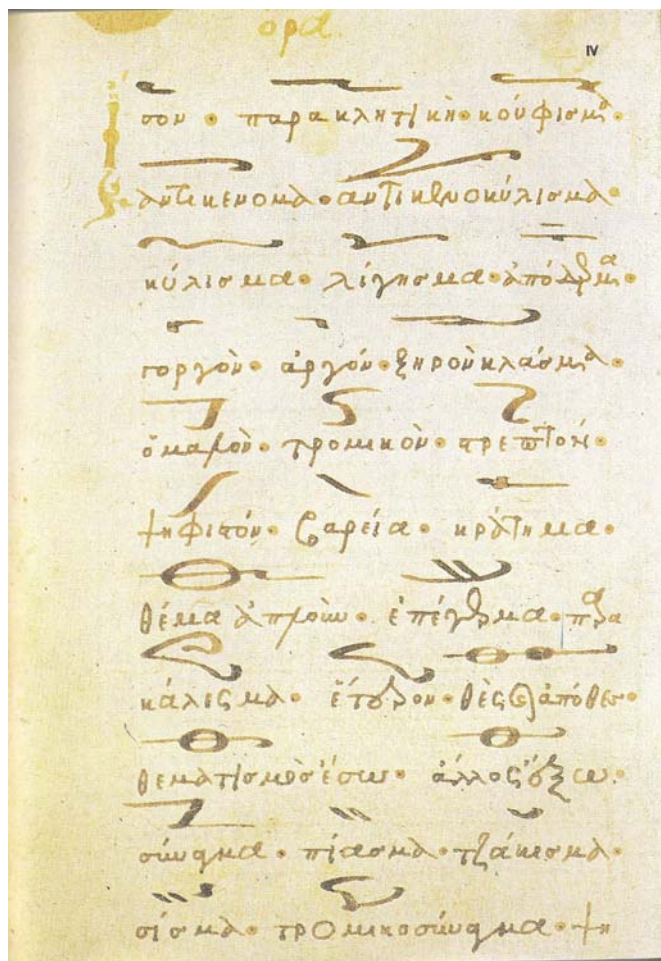 ορα
IV
σον · παρακλητικὴ · κούφισμα ·
ἀντικένομα · ἀντικενοκύλισμα ·
κύλισμα · λίγησμα · ἀπόδερμα ·
γοργὸν · ἀργόν · ξηρὸν κλάσμα ·
ὁμαλὸν · τρομικὸν · στρεπτὸν ·
ψηφιστόν · βαρεία · κράτημα ·
θέμα ἁπλοῦν · ἐπέγερμα · παρα
κάλεσμα · ἕτερον · θὲς καὶ ἀπόθες ·
θεματισμὸς ἔσω · ἄλλος ἔξω ·
σύναγμα · πίασμα · τζάκισμα ·
σίσμα · τρομικοσύναγμα · ψη